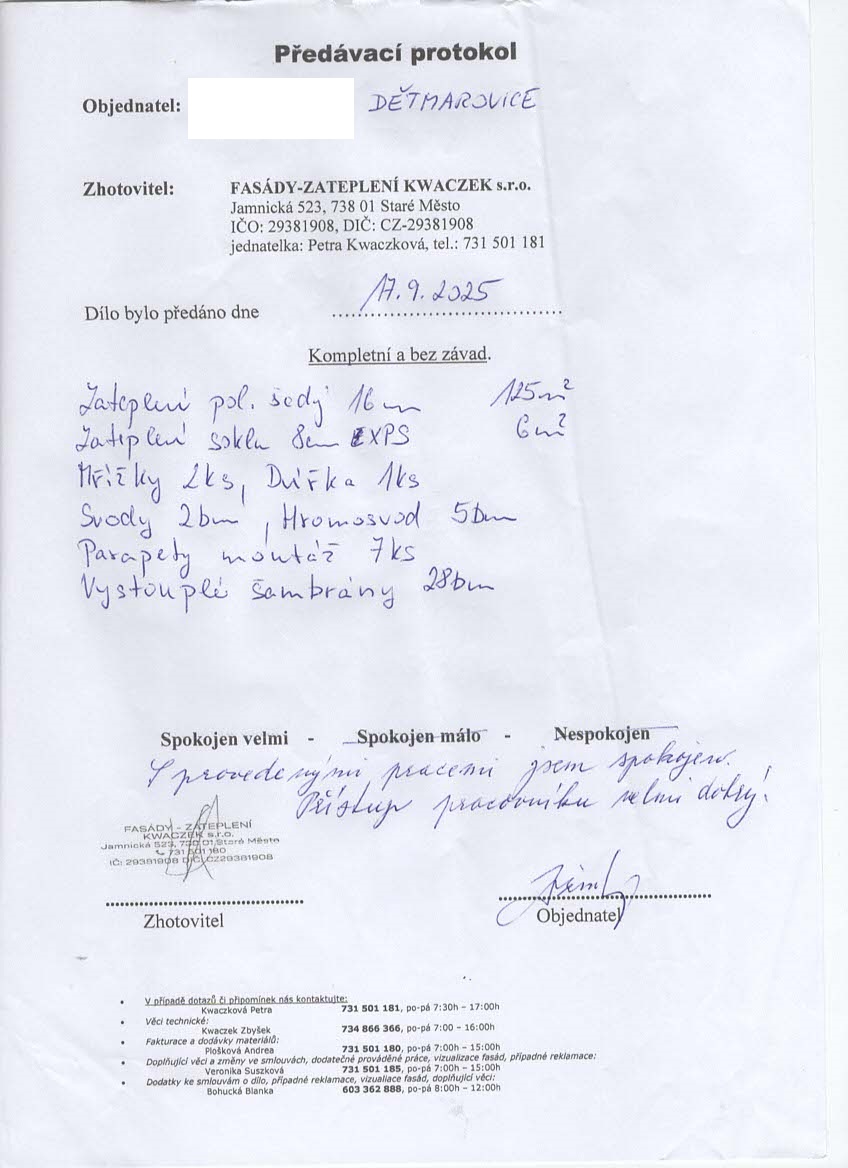 Předávací protokol
Objednatel: DĚTMAROVICE
Zhotovitel: FASÁDY-ZATEPLENÍ KWACZEK s.r.o.
Jamnická 523, 738 01 Staré Město
IČO: 29381908, DIČ: CZ-29381908
jednatelka: Petra Kwaczková, tel.: 731 501 181
Dílo bylo předáno dne 17.9.2025
Kompletní a bez závad.
Zateplení pol. šedý 16cm 125m²
Zateplení soklu 8cm EXPS 6m²
Mřížky 2ks, Dvířka 1ks
Svody 2bm, Hromosvod 5bm
Parapety montáž 7ks
Vystouplé šambrány 28bm
Spokojen velmi - Spokojen málo - Nespokojen
S provedenými pracemi jsem spokojen.
Přístup pracovníku velmi dobrý!
FASÁDY - ZATEPLENÍ
KWACZEK s.r.o.
Jamnická 523, 738 01 Staré Město
731 501 180
IČ: 29381908 DIČ: CZ29381908
Zhotovitel Objednatel
• V případě dotazů či připomínek nás kontaktujte:
Kwaczková Petra 731 501 181, po-pá 7:30h – 17:00h
• Věci technické:
Kwaczek Zbyšek 734 866 366, po-pá 7:00 – 16:00h
• Fakturace a dodávky materiálů:
Plošková Andrea 731 501 180, po-pá 7:00h – 15:00h
• Doplňující věci a změny ve smlouvách, dodatečné prováděné práce, vizualizace fasád, případné reklamace:
Veronika Suszková 731 501 185, po-pá 7:00h – 15:00h
• Dodatky ke smlouvám o dílo, případné reklamace, vizualiace fasád, doplňující věci:
Bohucká Blanka 603 362 888, po-pá 8:00h – 12:00h